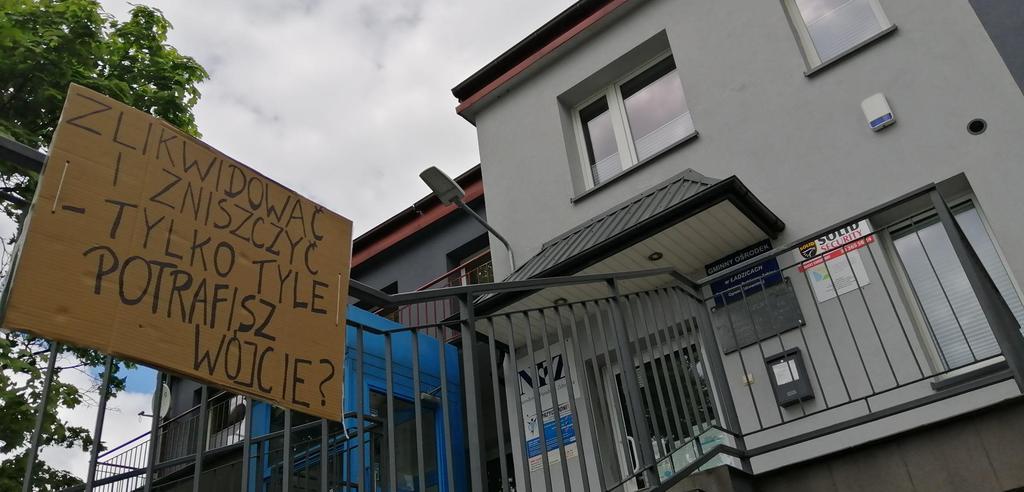 ZLIKWIDOWAĆ
I ZNISZCZYĆ
- TYLKO TYLE
POTRAFISZ
WÓJCIE?
GMINNY OŚRODEK
w ŁADZICACH
SOLID
SECURITY
NFZ